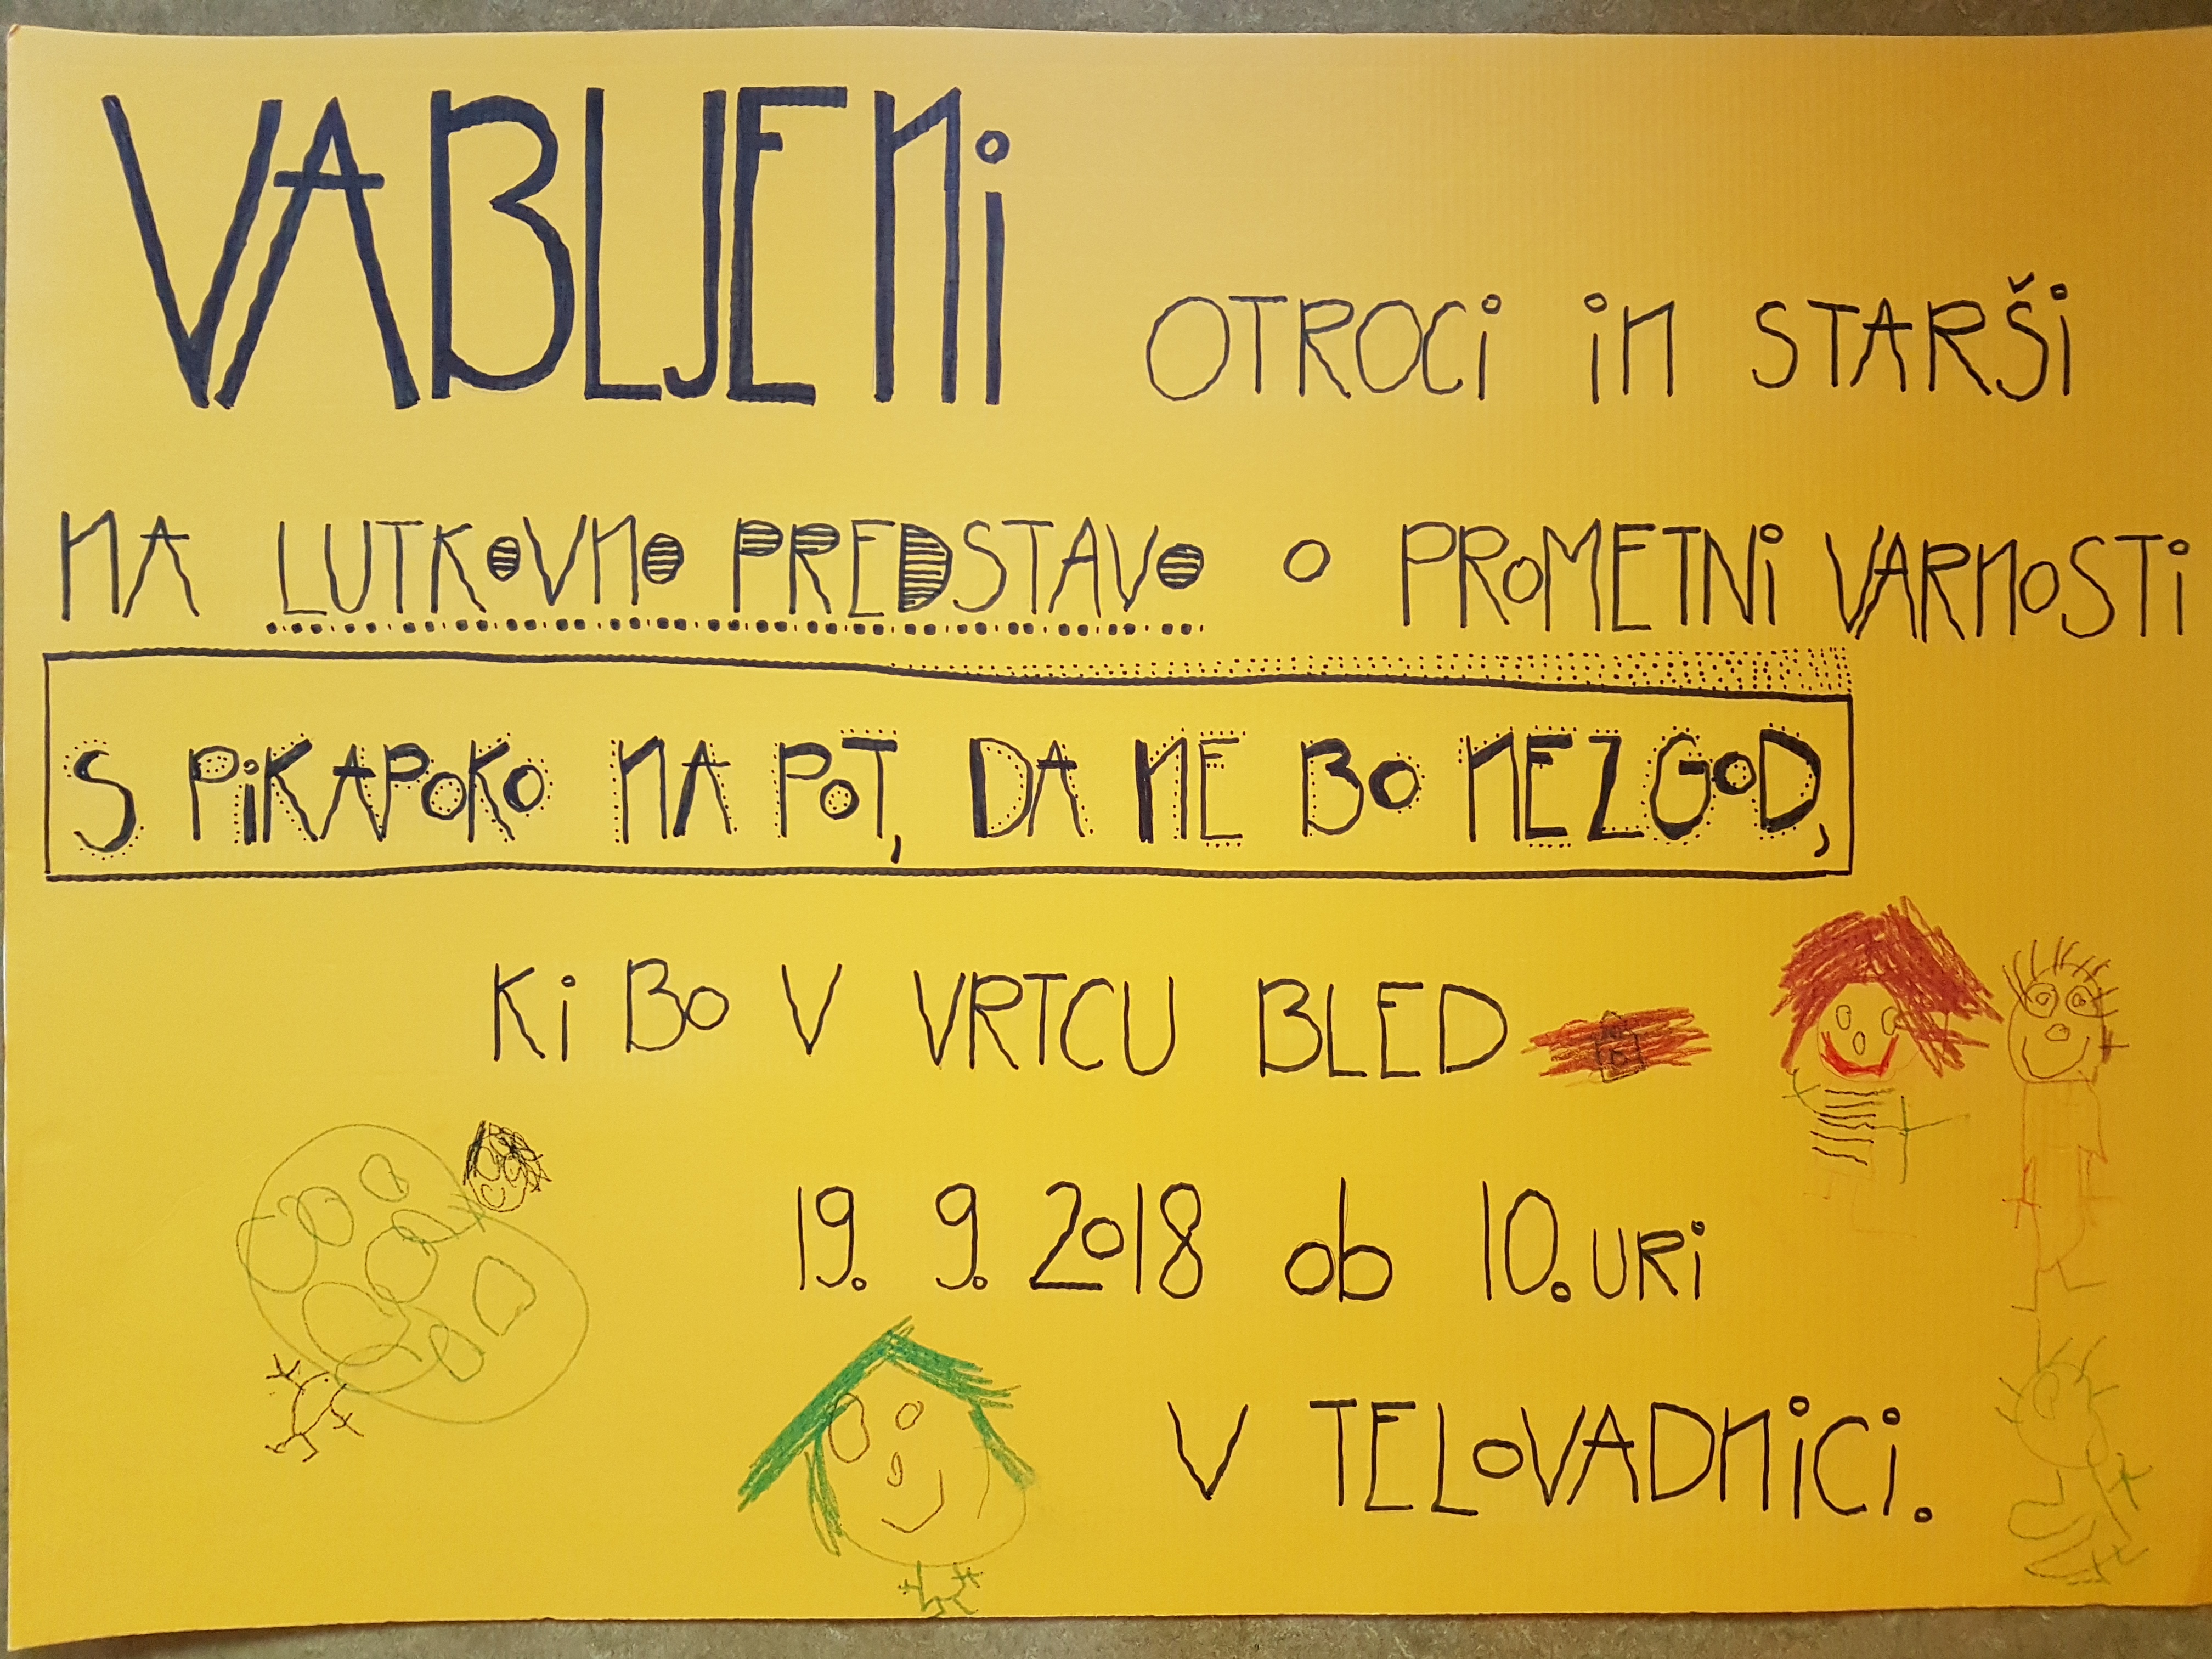 VABLJENi OTROCi iN STARŠi
NA LUTKOVNO PREDSTAVO O PROMETNi VARNOSTi
S PiKAPOKO NA POT, DA NE BO NEZGOD,
Ki BO V VRTCU BLED
19. 9. 2018 ob 10. URi
V TELOVADNiCi.